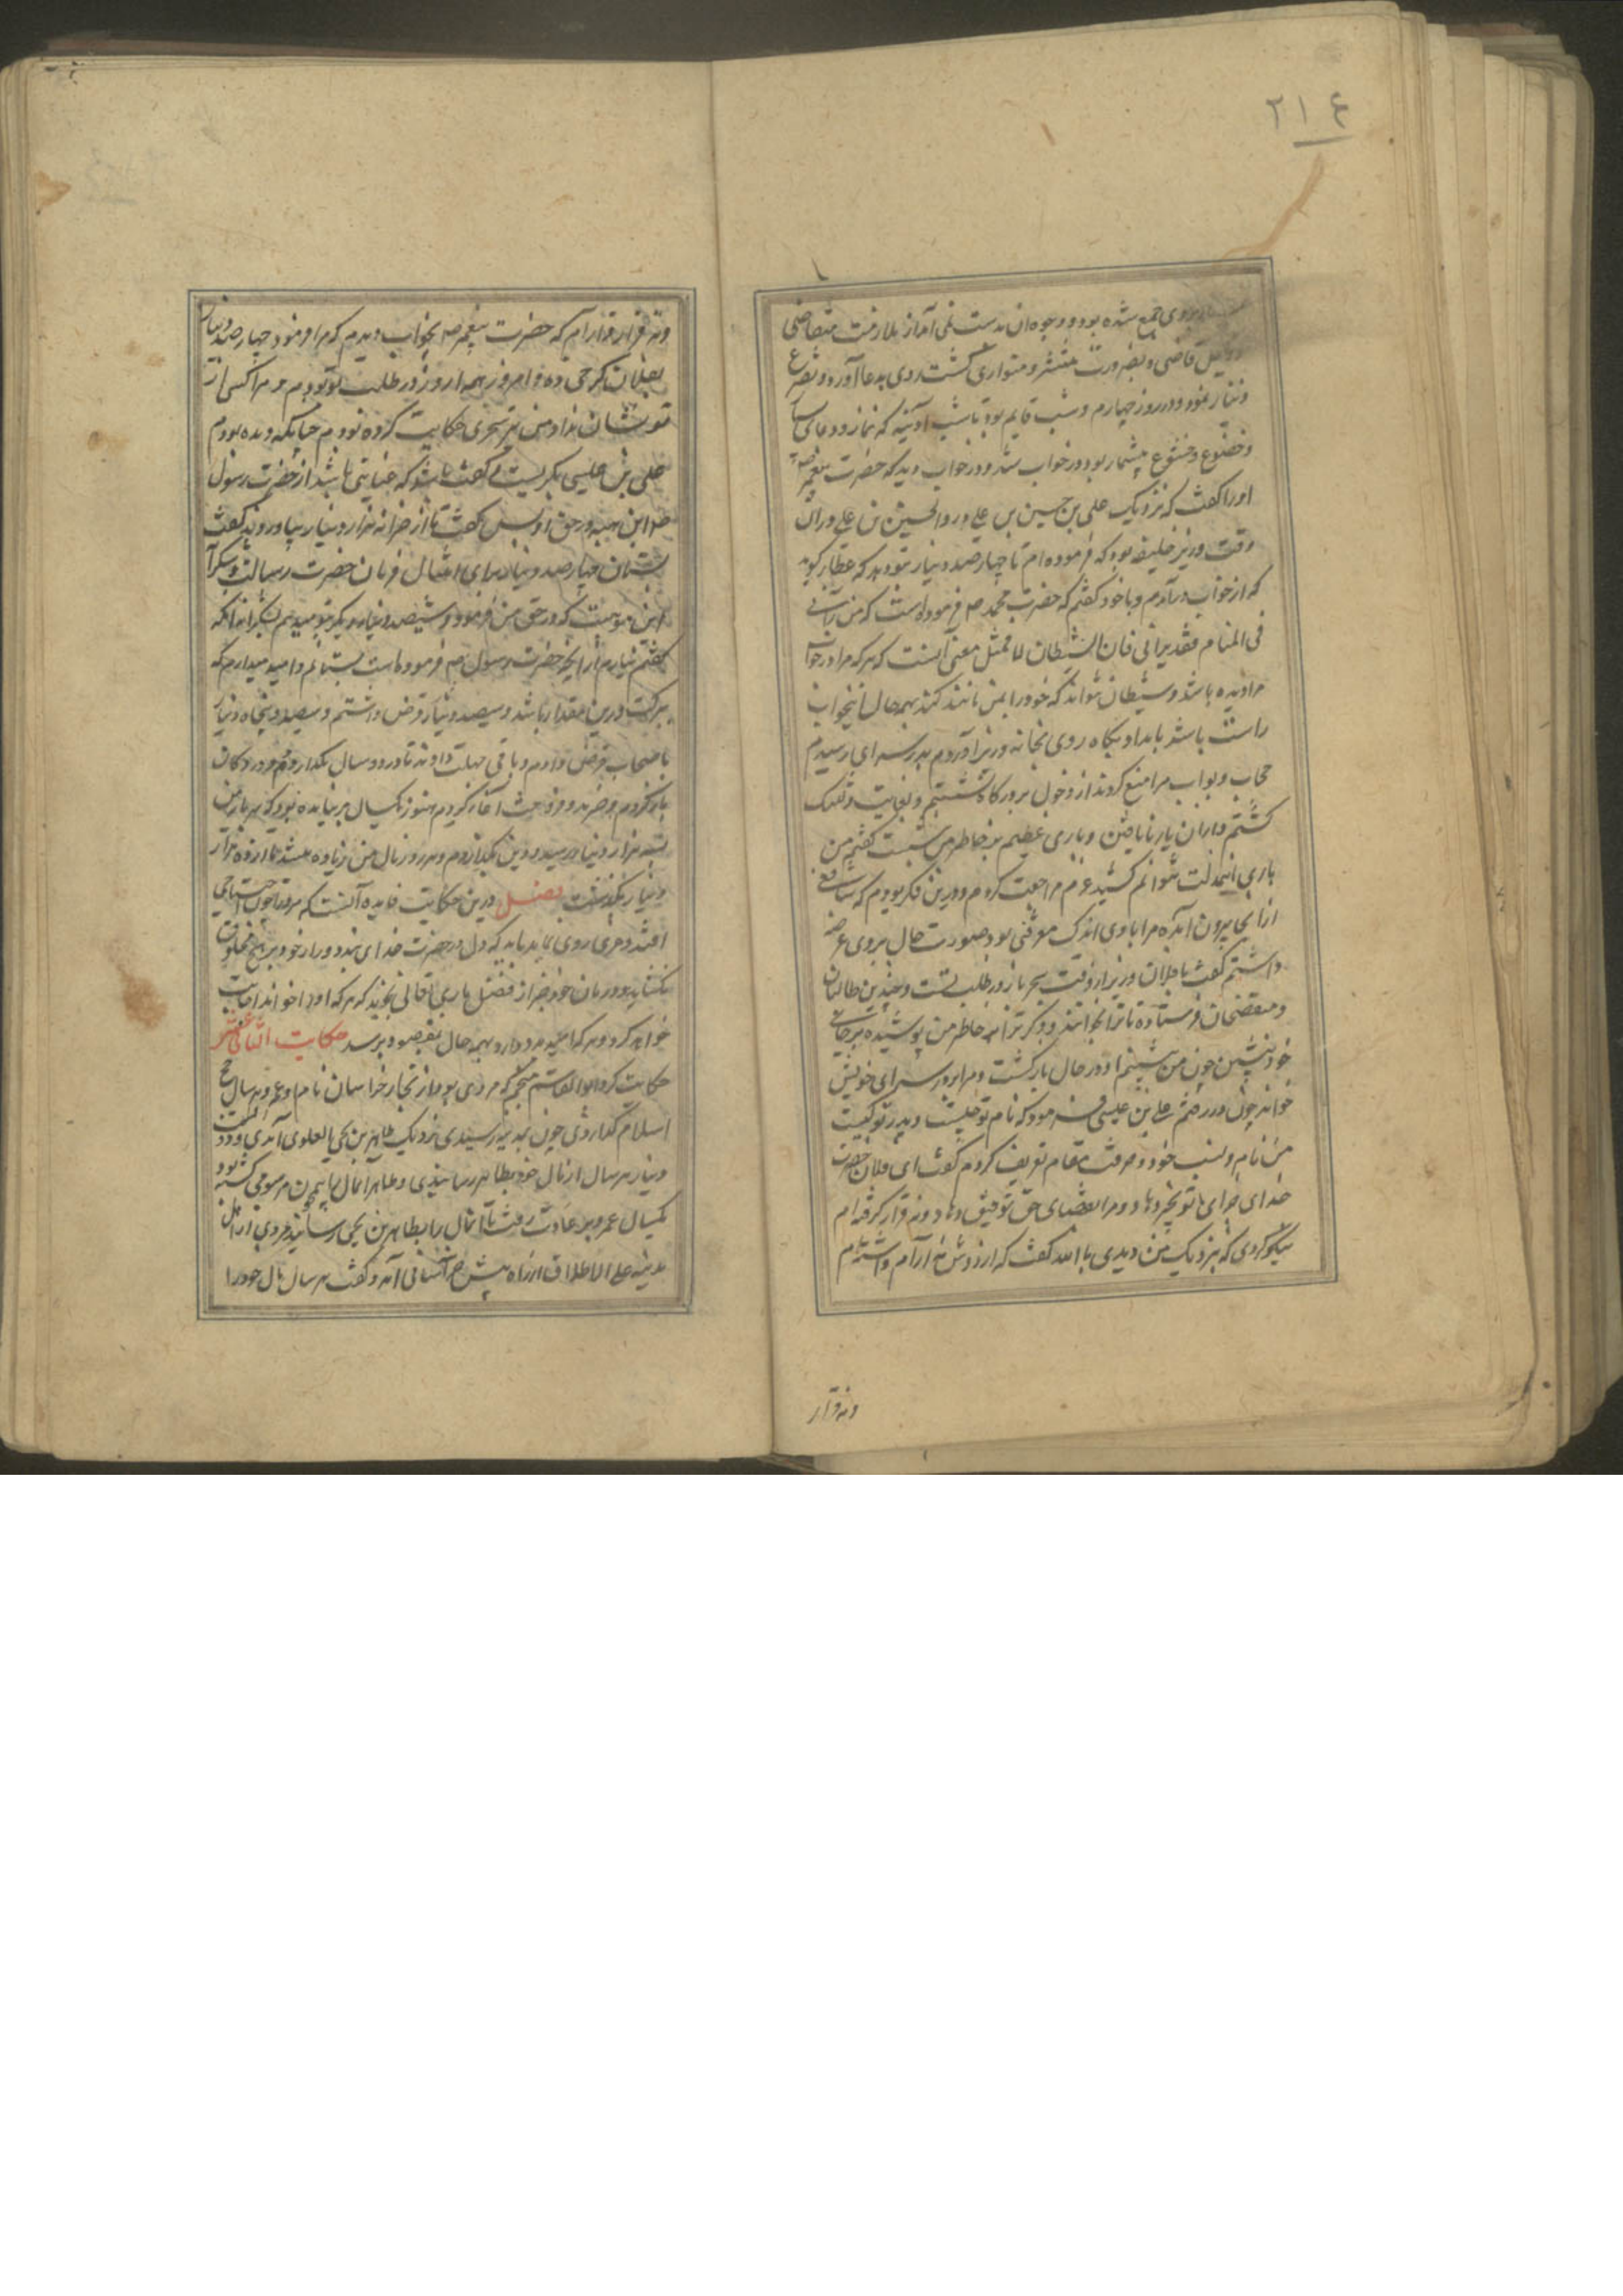 ٢١٤
بروی جمع شده بود و وجوه آن بدست نمی آمد از ملازمت متقاضی
وکیل قاضی و بضرورت منتشر و متواری گشت روی بدعا آورد و تضرع
نمود و در روز چهارم و شب قایم بود تا شب آدینه که نماز و دعای
و خضوع و خشوع بیشمار بود در خواب شد و در خواب دید که حضرت پیغمبر
او را گفت که نزدیک علی بن عیسی رو و در آن
وقت وزیر خلیفه بود که فرموده ام تا چهار صد دینار بتو دهد که عطار گوید
که از خواب درآمدم و با خود گفتم که حضرت محمد صم فرموده است که من رآنی
فی المنام فقد رآنی فان الشیطان لا یتمثل معنی آنست که هر که مرا در خواب
مرا دیده باشد و شیطان نتواند که خود را بمن مانند کند بهمه حال این خواب
راست باشد بامداد پگاه روی بخانه وزیر آوردم بدر سرای رسیدم
حجاب و بواب مرا منع کردند از دخول بر درگاه نشستم و بغایت دلتنگ
گشتم و از آن یار نایافتن و باری عظیم بر خاطر من نشست گفتم من
باری این مذلت نتوانم کشید عزم مراجعت کردم و درین فکر بودم که شافعی
از آنجا بیرون آمد و مرا با وی اندک معرفتی بود صورت حال بروی عرضه
داشتم گفت یا فلان وزیر از وقت سحر باز در طلب تست و چندین طالبان
و متفحصان فرستاده تا ترا بخوانند و ذکر تو از خاطر من پوشیده بر جای
خود بنشین چون من بنشستم او در حال بازگشت و مرا بدر سرای خویش
خواند چون در رفتم علی بن عیسی فرمود که نام تو چیست و پدر تو کیست
من نام و نسب خود و حرفت و مقام تعریف کردم گفت ای فلان حضرت
خدای جزای تو بخیر دهاد و مرا بقضای حق تو توفیق دهاد و نه قرار گرفته ام
نیکو کردی که بنزدیک من دیدی بالله گفت که از دوش نه آرام داشته ام
و نه قرار
و نه قرار و آرام که حضرت پیغمبر صم بخواب دیدم که مرا فرمود چهار صد دینار
بفلان کرخی ده و امروز همه روز در طلب تو بودم و مرا کسی از
تو نشان نداد من نیز حکایت کرده بودم چنانکه دیده بودم
علی بن عیسی بگریست و گفت باشد که عنایتی باشد از حضرت رسول
صم این همه در حق او پس گفت تا از خزانه هزار دینار بیاوردند گفت
بستان چهار صد دینار برای امتثال فرمان حضرت رسالت و شکر آن
این موهبت که در حق من فرمود و ششصد دینار دیگر بتو میدهم
گفتم نیارم از آنچه حضرت رسول صم فرموده است بستانم و امید میدارم که
برکت درین مقدار باشد و سیصد دینار قرض داشتم و سیصد و پنجاه دینار
باصحاب قرض دادم و باقی مهلت دادند تا در دو سال بگذارم و در دکان
باز کردم و خرید و فروخت آغاز کردم هنوز یکسال بر نیامده بود که سرمایه من
به هزار دینار رسید و دین بگذاردم و هر روز مال من زیاده میشد تا از ده هزار
دینار بگذشت فصل درین حکایت فایده آنست که مرد را چون احتیاجی
افتد و حزنی روی نماید باید که دل در حضرت خدای بندد و راز خود بر هیچ مخلوق
نگشاید و درمان خود جز از فضل باری تعالی نجوید که هر که او را خواند اجابت
خواهد کرد و هر که امید بدو دارد بهمه حال بمقصود برسد حکایت الثانی عشر
حکایت کرد ابوالقاسم منجم که مردی بود از تجار خراسان نام او عمرو هر سال حج
اسلام گذاردی چون بمدینه رسیدی نزدیک طاهر بن یحیی العلوی آمدی و دویست
دینار هر سال از مال خود بطاهر رسانیدی و طاهر را آن مال همچون مرسومی گشته بود
یکسال عمرو بر عادت رفت تا آن مال را بطاهر بن یحیی رساند مردی از اهل
مدینه علی الاطلاق از راه پیش خراسانی آمد و گفت هر سال مال خود را